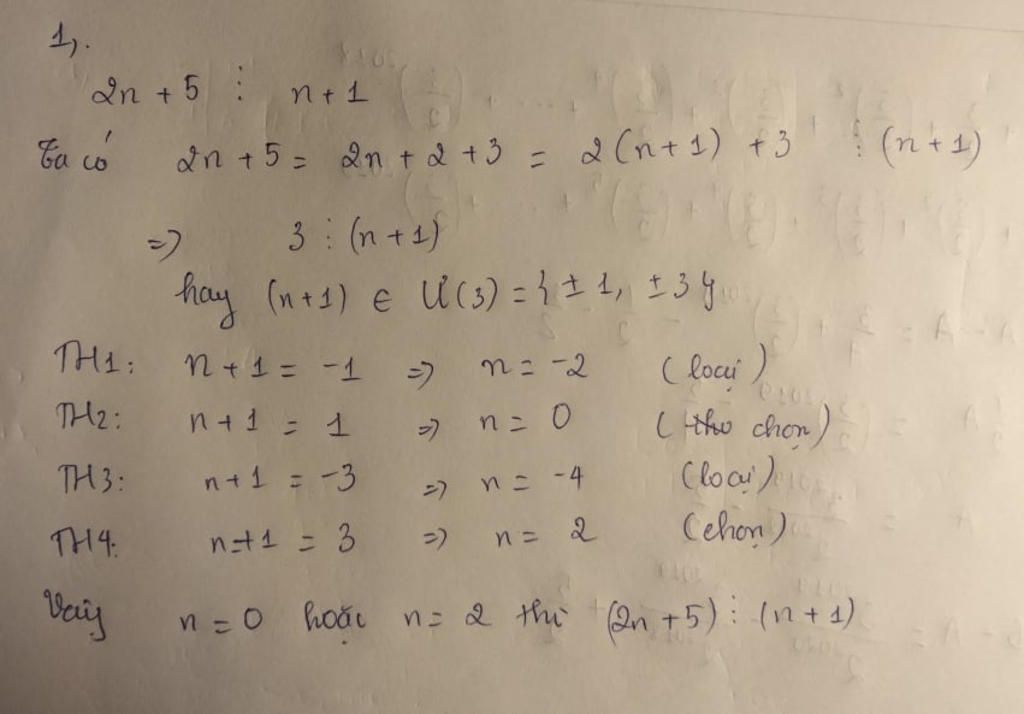 1,.
2n + 5 ⋮ n + 1
Ta có 2n + 5 = 2n + 2 + 3 = 2(n + 1) + 3 ⋮ (n + 1)
=> 3 ⋮ (n + 1)
hay (n + 1) ∈ Ư(3) = { ± 1, ± 3 }
TH1: n + 1 = -1 => n = -2 (loại)
TH2: n + 1 = 1 => n = 0 (chọn)
TH3: n + 1 = -3 => n = -4 (loại)
TH4: n + 1 = 3 => n = 2 (chọn)
Vậy n = 0 hoặc n = 2 thì (2n + 5) ⋮ (n + 1)